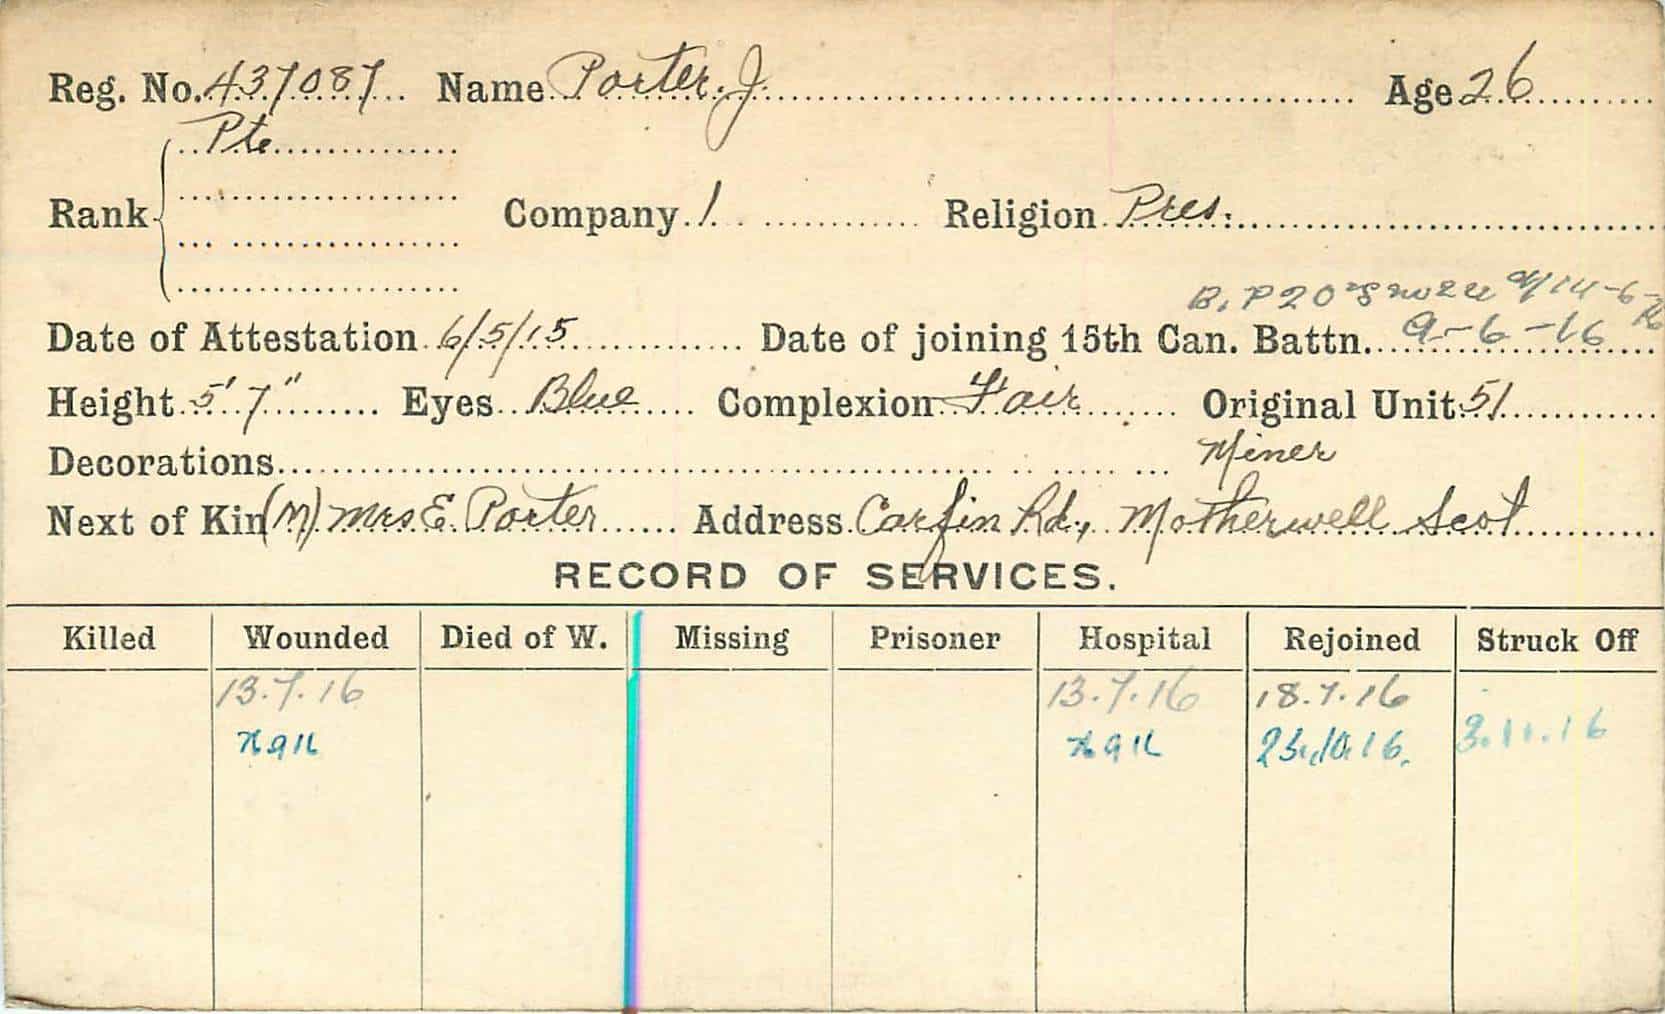 Reg. No. 437087 Name Porter. J. Age 26
Pte
Rank Company 1 Religion Pres:
B. P20
Date of Attestation 6/5/15 Date of joining 15th Can. Battn. 9-6-16
Height 5' 7" Eyes Blue Complexion Fair Original Unit 51
Decorations Miner
Next of Kin (M) Mrs E. Porter Address Carfin Rd., Motherwell Scot
RECORD OF SERVICES.
Killed Wounded Died of W. Missing Prisoner Hospital Rejoined Struck Off
13.7.16 13.7.16 18.7.16
23.10.16. 3.11.16